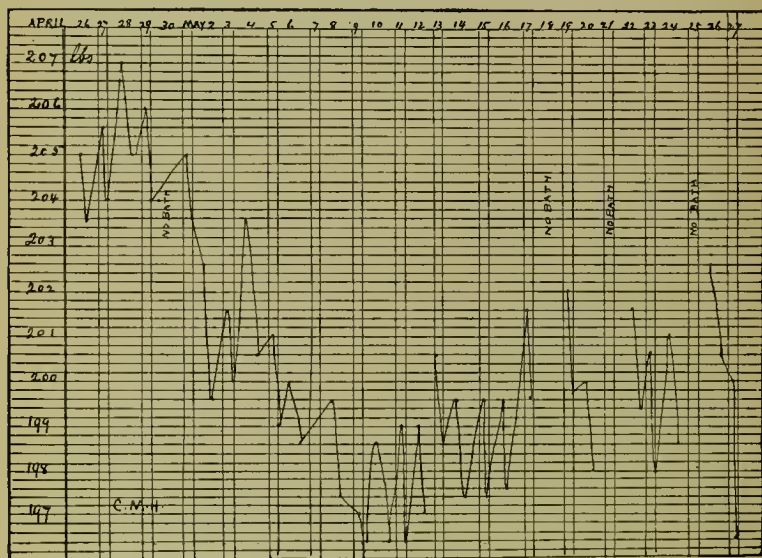 APRIL 26 27 28 29 30 MAY 2 3 4 5 6 7 8 9 10 11 12 13 14 15 16 17 18 19 20 21 22 23 24 25 26 27
207 lbs
206
205
204
203
202
201
200
199
198
197
NO BATH
NO BATH
NO BATH
NO BATH
C.M.H.